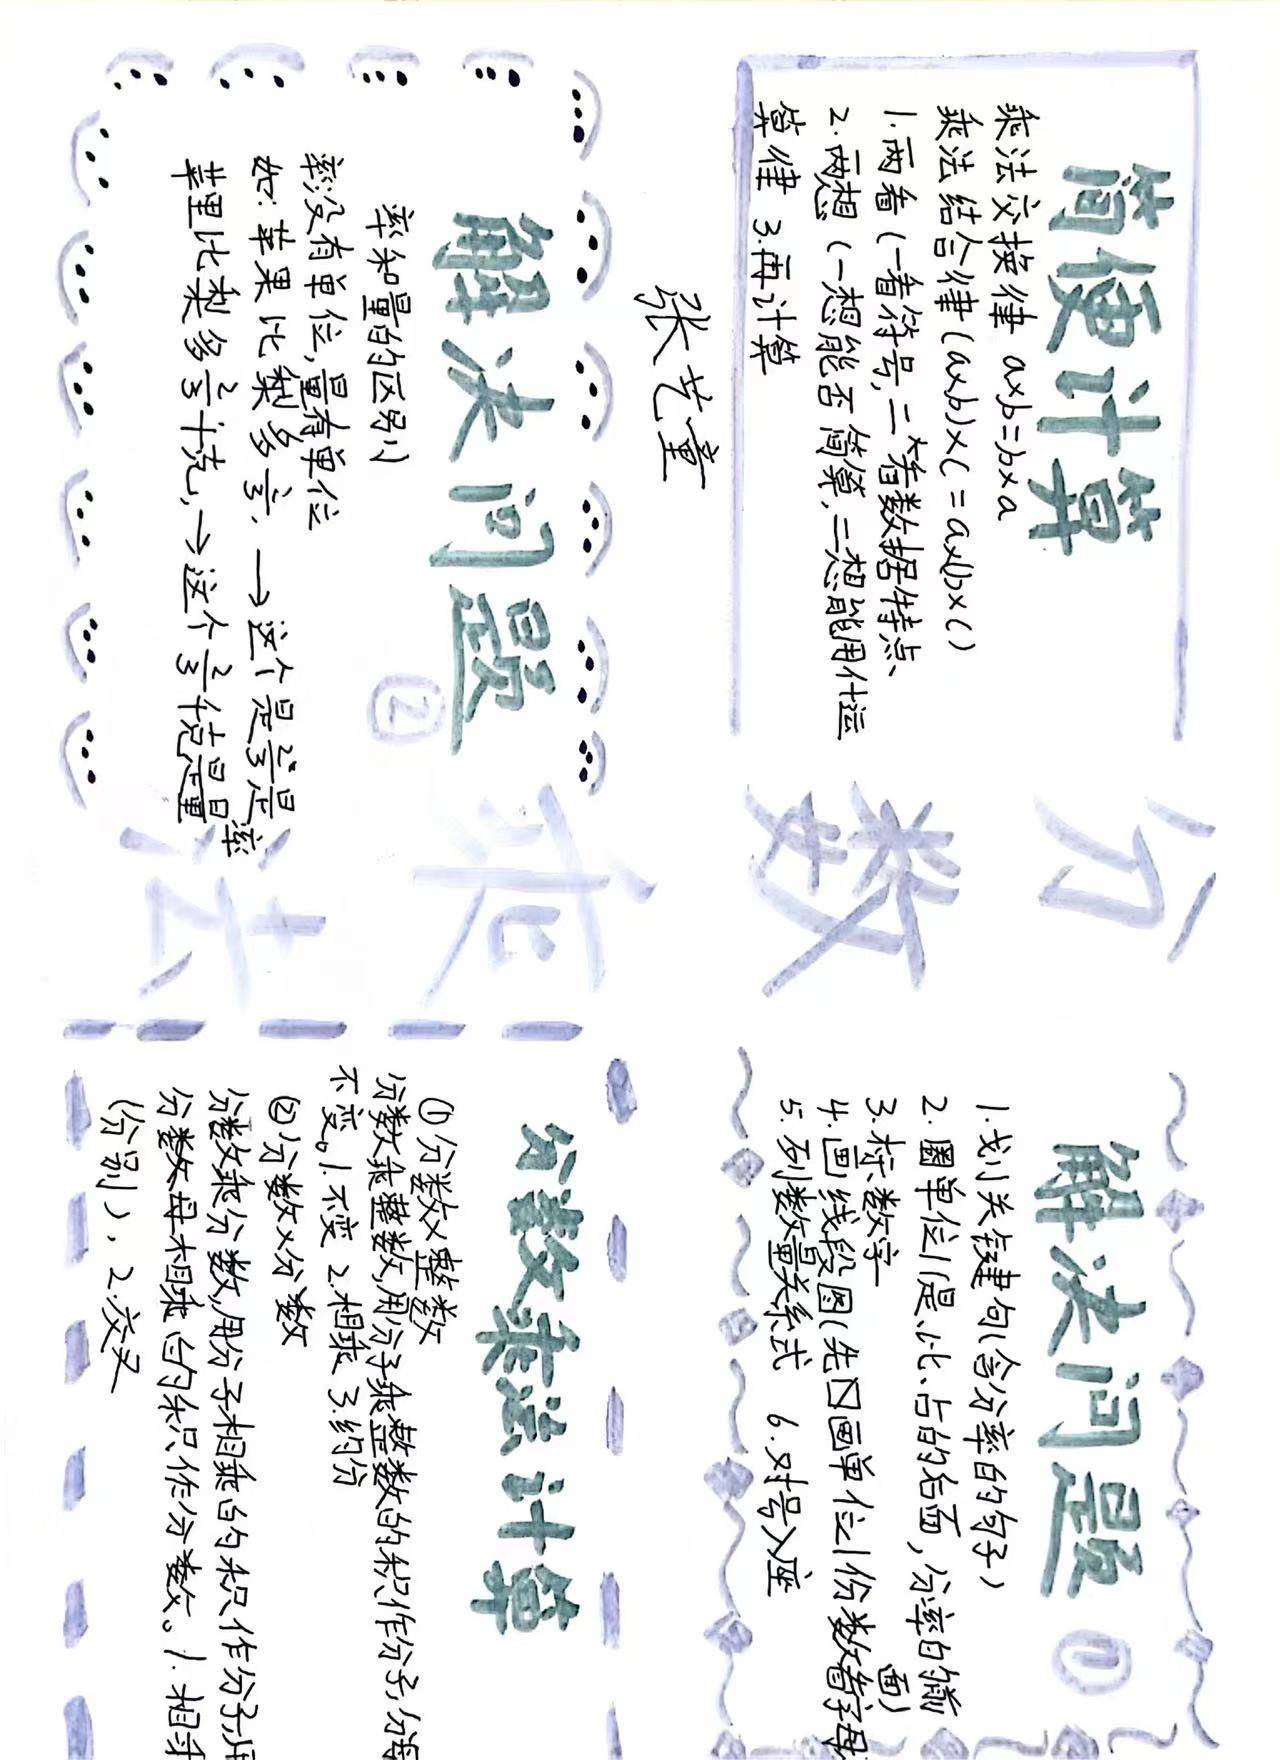 简便计算
乘法交换律 a×b=b×a
乘法结合律(a×b)×c=a×(b×c)
1.两看(一看符号,二看数据特点、
2.两想(一想能否简算,二想能用什运
算律 3.再计算
张艺童
解决问题
②
率和量的区别
率没有单位,量有单位
如:苹果比梨多2/3.→这个2/3是
率
苹果比梨多2/3千克,→这个2/3千克是量
分数
乘法
解决问题
①
1.划关键句(含分率的句子)
2.圈单位1(是、比、占的右面,分率的前
面)
3.标数字
4.画线段图(先画单位1份数看字母
5.列数量关系式 6.对号入座
分数乘法计算
⑴分数×整数
分数乘整数,用分子乘整数的积作分子,分母
不变。1.不变 2.相乘 3.约分
⑵分数×分数
分数乘分数,用分子相乘的积作分子,用
分数母相乘的积作分数。1.相乘
(分别),2.交叉